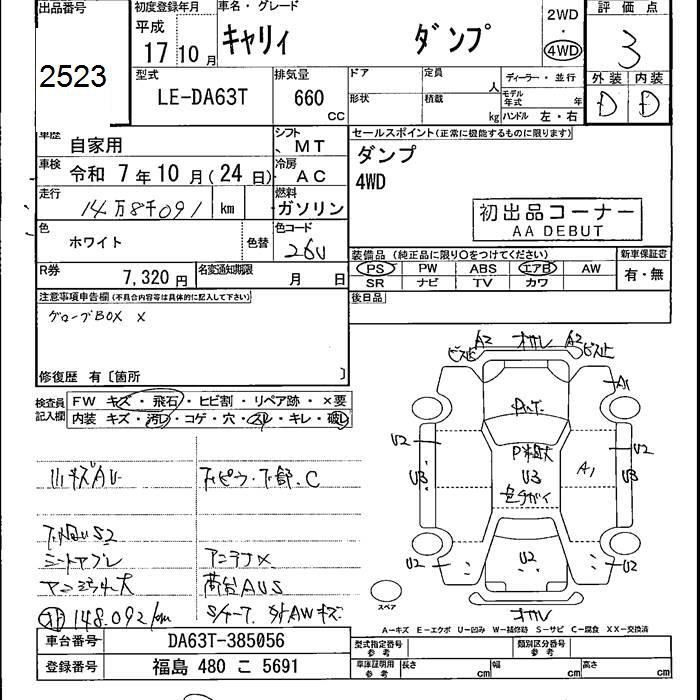 出品番号
2523
初度登録年月
平成
17年10月
車名・グレード
キャリィ ダンプ
2WD
・
4WD
評価点
3
外装 内装
D D
型式
LE-DA63T
排気量
660
CC
ドア
定員
人
形状
積載
kg
ディーラー・並行
モデル年式 年
ハンドル 左・右
車歴
自家用
シフト
MT
セールスポイント(正常に機能するものに限ります)
ダンプ
4WD
車検
令和 7年10月(24日)
冷房
AC
走行
14万8千091 km
燃料
ガソリン
初出品コーナー
AA DEBUT
色
ホワイト
色替
色コード
26U
装備品(純正品に限り○をつけてください)
PS PW ABS エアB AW
SR ナビ TV カワ
新車保証書
有・無
R券
7,320円
名変通知期限
月 日
後日品
注意事項申告欄(不具合内容等は具体的に記入して下さい)
グローブBOX ×
修復歴 有〔箇所 〕
検査員記入欄
FW キズ・飛石・ヒビ割・リペア跡・×要
内装 キズ・汚レ・コゲ・穴・スレ・キレ・破レ
A2 オサレ A2
ビス止 ビス止
A1
P
U2 U2
U3 U3 U3
A1
U2 U2 U2
オサレ
スペア
小キズAU
下部、C
アンテナ×
148,092/km
S/ケース
車台番号
DA63T-385056
登録番号
福島 480 こ 5691
A…キズ E…エクボ U…凹み W…補修跡 S…サビ C…腐食 XX…交換済
型式指定番号
参考
類別区分番号
参考
車庫証明用
参考
長さ cm
幅 cm
高さ cm